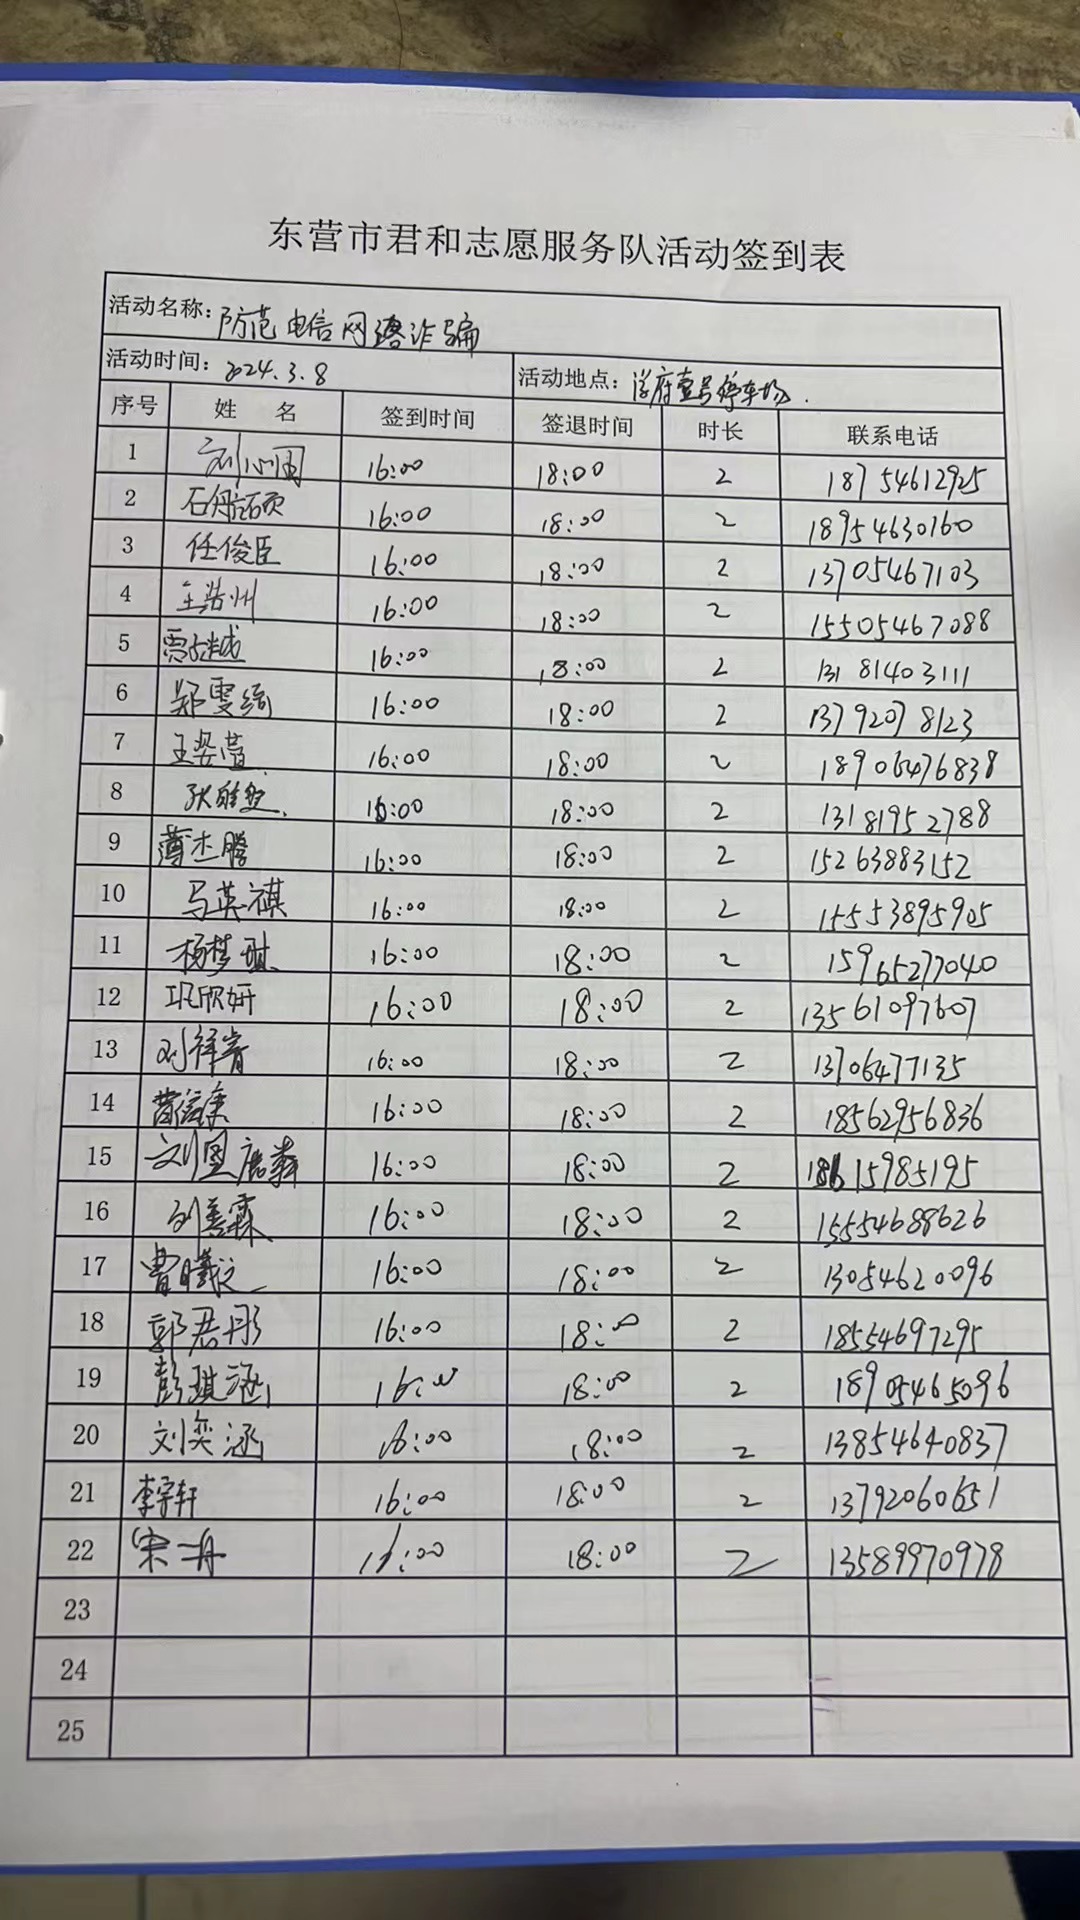 东营市君和志愿服务队活动签到表
活动名称：防范电信网络诈骗
活动时间：2024.3.8 活动地点：学府壹号停车场.
序号 姓 名 签到时间 签退时间 时长 联系电话
1 16:00 18:00 2 18754612925
2 石航硕 16:00 18:00 2 18954630160
3 任俊臣 16:00 18:00 2 13705467103
4 王浩州 16:00 18:00 2 15505467088
5 16:00 18:00 2 13181403111
6 郑雯绮 16:00 18:00 2 13792078123
7 王姿萱 16:00 18:00 2 18906476838
8 16:00 18:00 2 13181952788
9 薄杰腾 16:00 18:00 2 15263883152
10 马英祺 16:00 18:00 2 15553895905
11 杨梦琪 16:00 18:00 2 15965277040
12 巩欣妍 16:00 18:00 2 13561097607
13 刘祥青 16:00 18:00 2 13706477135
14 16:00 18:00 2 18562956836
15 16:00 18:00 2 18615985195
16 刘善霖 16:00 18:00 2 15554688626
17 16:00 18:00 2 13054620096
18 郭君彤 16:00 18:00 2 18554697295
19 彭琪涵 16:00 18:00 2 18905465096
20 刘奕涵 16:00 18:00 2 13854640837
21 李宇轩 16:00 18:00 2 13792060651
22 宋一舟 16:00 18:00 2 13589970978
23
24
25